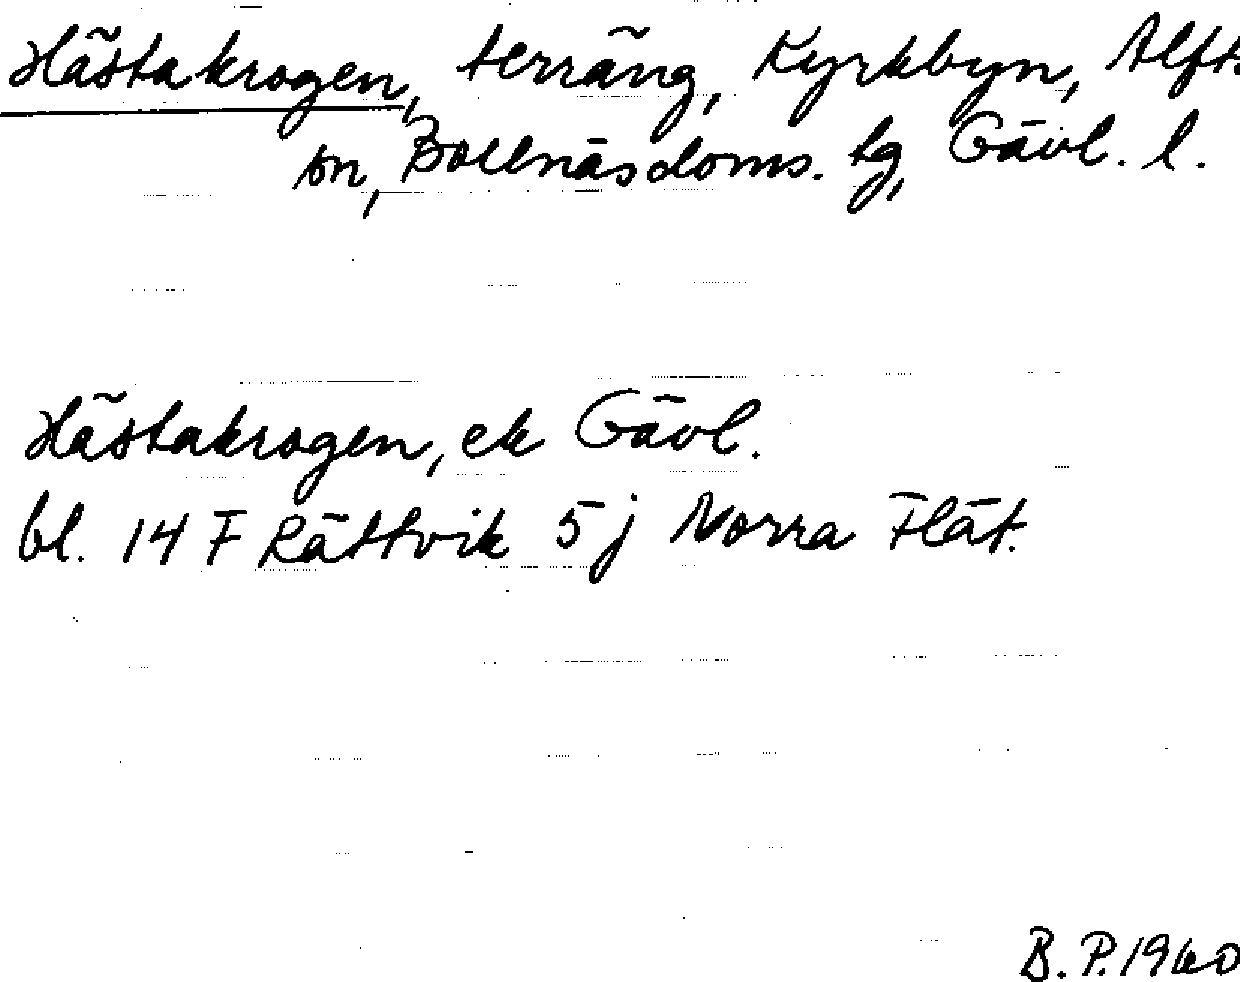 Hästakrogen, terräng, Kyrkbyn, Alfta
sn, Bollnäs doms. tg, Gävl. l.
Hästakrogen, ek Gävl.
bl. 14 F Rättvik 5 j Norra Flät.
B. P. 1960